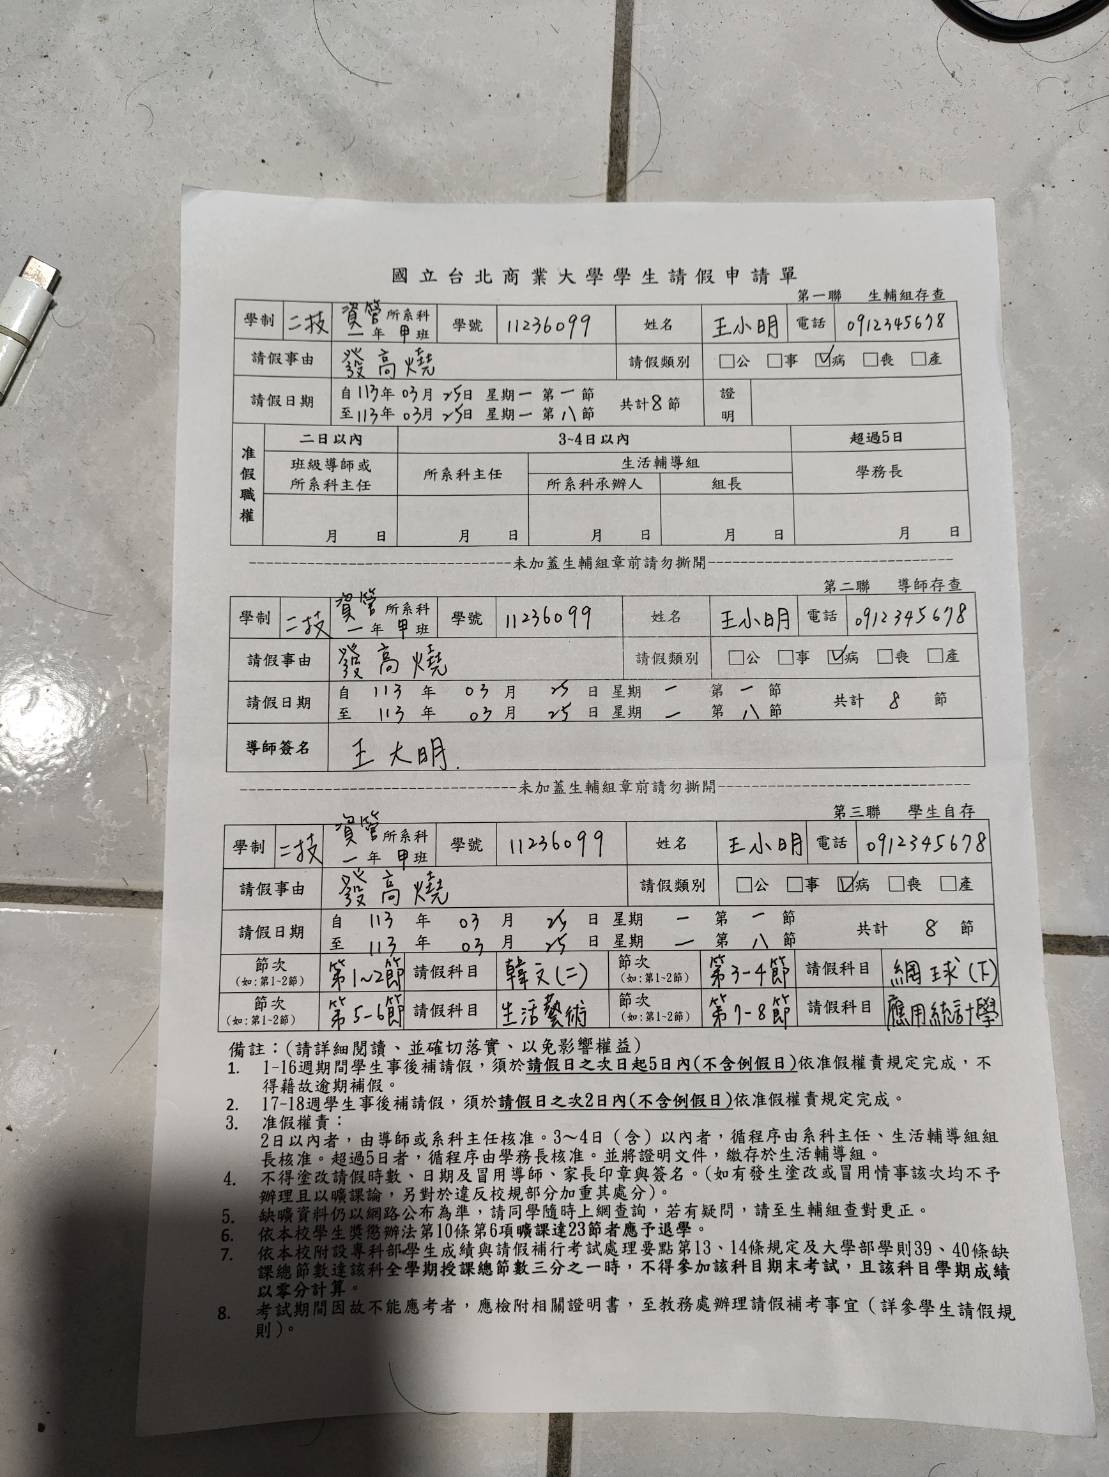 國立台北商業大學學生請假申請單
第一聯 生輔組存查
學制 二技 資管 所系科 一年 甲班 學號 11236099 姓名 王小明 電話 0912345678
請假事由 發高燒 請假類別 □公 □事 ☑病 □喪 □產
請假日期 自113年03月25日 星期一 第一節 共計8節 證明
至113年03月25日 星期一 第八節
准假職權 二日以內 3~4日以內 超過5日
班級導師或所系科主任 所系科主任 生活輔導組 學務長
所系科承辦人 組長
月 日 月 日 月 日 月 日 月 日
未加蓋生輔組章前請勿撕開
第二聯 導師存查
學制 二技 資管 所系科 一年 甲班 學號 11236099 姓名 王小明 電話 0912345678
請假事由 發高燒 請假類別 □公 □事 ☑病 □喪 □產
請假日期 自 113 年 03 月 25 日 星期 一 第 一 節 共計 8 節
至 113 年 03 月 25 日 星期 一 第 八 節
導師簽名 王大明.
未加蓋生輔組章前請勿撕開
第三聯 學生自存
學制 二技 資管 所系科 一年 甲班 學號 11236099 姓名 王小明 電話 0912345678
請假事由 發高燒 請假類別 □公 □事 ☑病 □喪 □產
請假日期 自 113 年 03 月 25 日 星期 一 第 一 節 共計 8 節
至 113 年 03 月 25 日 星期 一 第 八 節
節次(如:第1~2節) 第1~2節 請假科目 韓文(二) 節次(如:第1~2節) 第3-4節 請假科目 網球(下)
節次(如:第1~2節) 第5-6節 請假科目 生活藝術 節次(如:第1~2節) 第7-8節 請假科目 應用統計學
備註：(請詳細閱讀、並確切落實、以免影響權益)
1. 1-16週期間學生事後補請假，須於請假日之次日起5日內(不含例假日)依准假權責規定完成，不
得藉故逾期補假。
2. 17-18週學生事後補請假，須於請假日之次2日內(不含例假日)依准假權責規定完成。
3. 准假權責：
2日以內者，由導師或系科主任核准。3～4日（含）以內者，循程序由系科主任、生活輔導組組
長核准。超過5日者，循程序由學務長核准。並將證明文件，繳存於生活輔導組。
4. 不得塗改請假時數、日期及冒用導師、家長印章與簽名。(如有發生塗改或冒用情事該次均不予
辦理且以曠課論，另對於違反校規部分加重其處分)。
5. 缺曠資料仍以網路公布為準，請同學隨時上網查詢，若有疑問，請至生輔組查對更正。
6. 依本校學生獎懲辦法第10條第6項曠課達23節者應予退學。
7. 依本校附設專科部學生成績與請假補行考試處理要點第13、14條規定及大學部學則39、40條缺
課總節數達該科全學期授課總節數三分之一時，不得參加該科目期末考試，且該科目學期成績
以零分計算。
8. 考試期間因故不能應考者，應檢附相關證明書，至教務處辦理請假補考事宜（詳參學生請假規
則）。